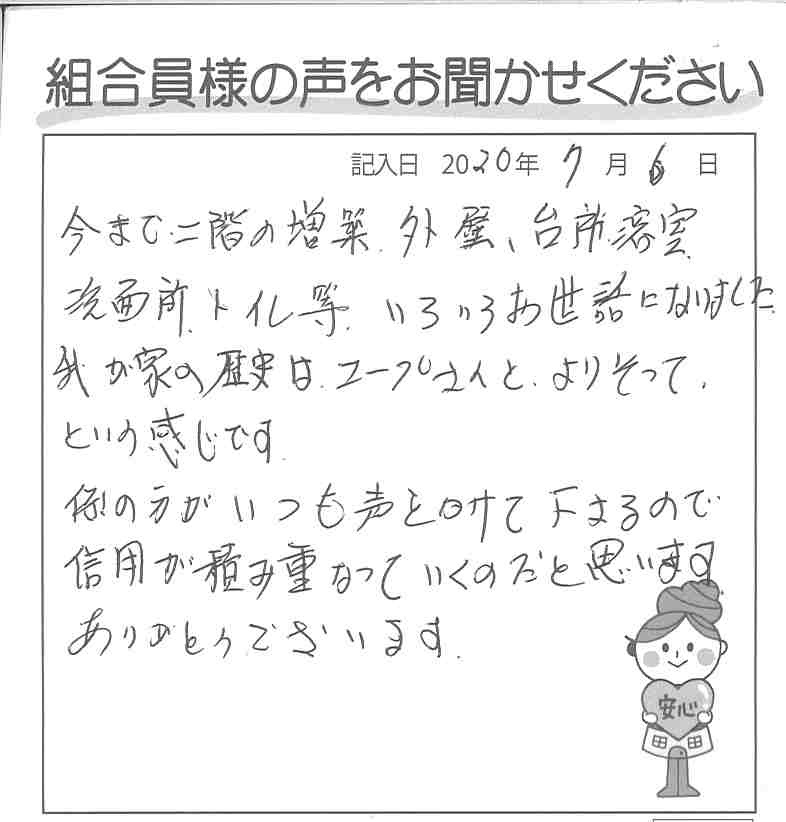 組合員様の声をお聞かせください
記入日 2020年 7月 6日
今まで二階の増築、外壁、台所浴室
洗面所、トイレ等、いろいろお世話になりました
我が家の歴史は、コープさんと、よりそって、
という感じです。
係の方がいつも声を掛けて下さるので
信用が積み重なっていくのだと思います。
ありがとうございます。
安心